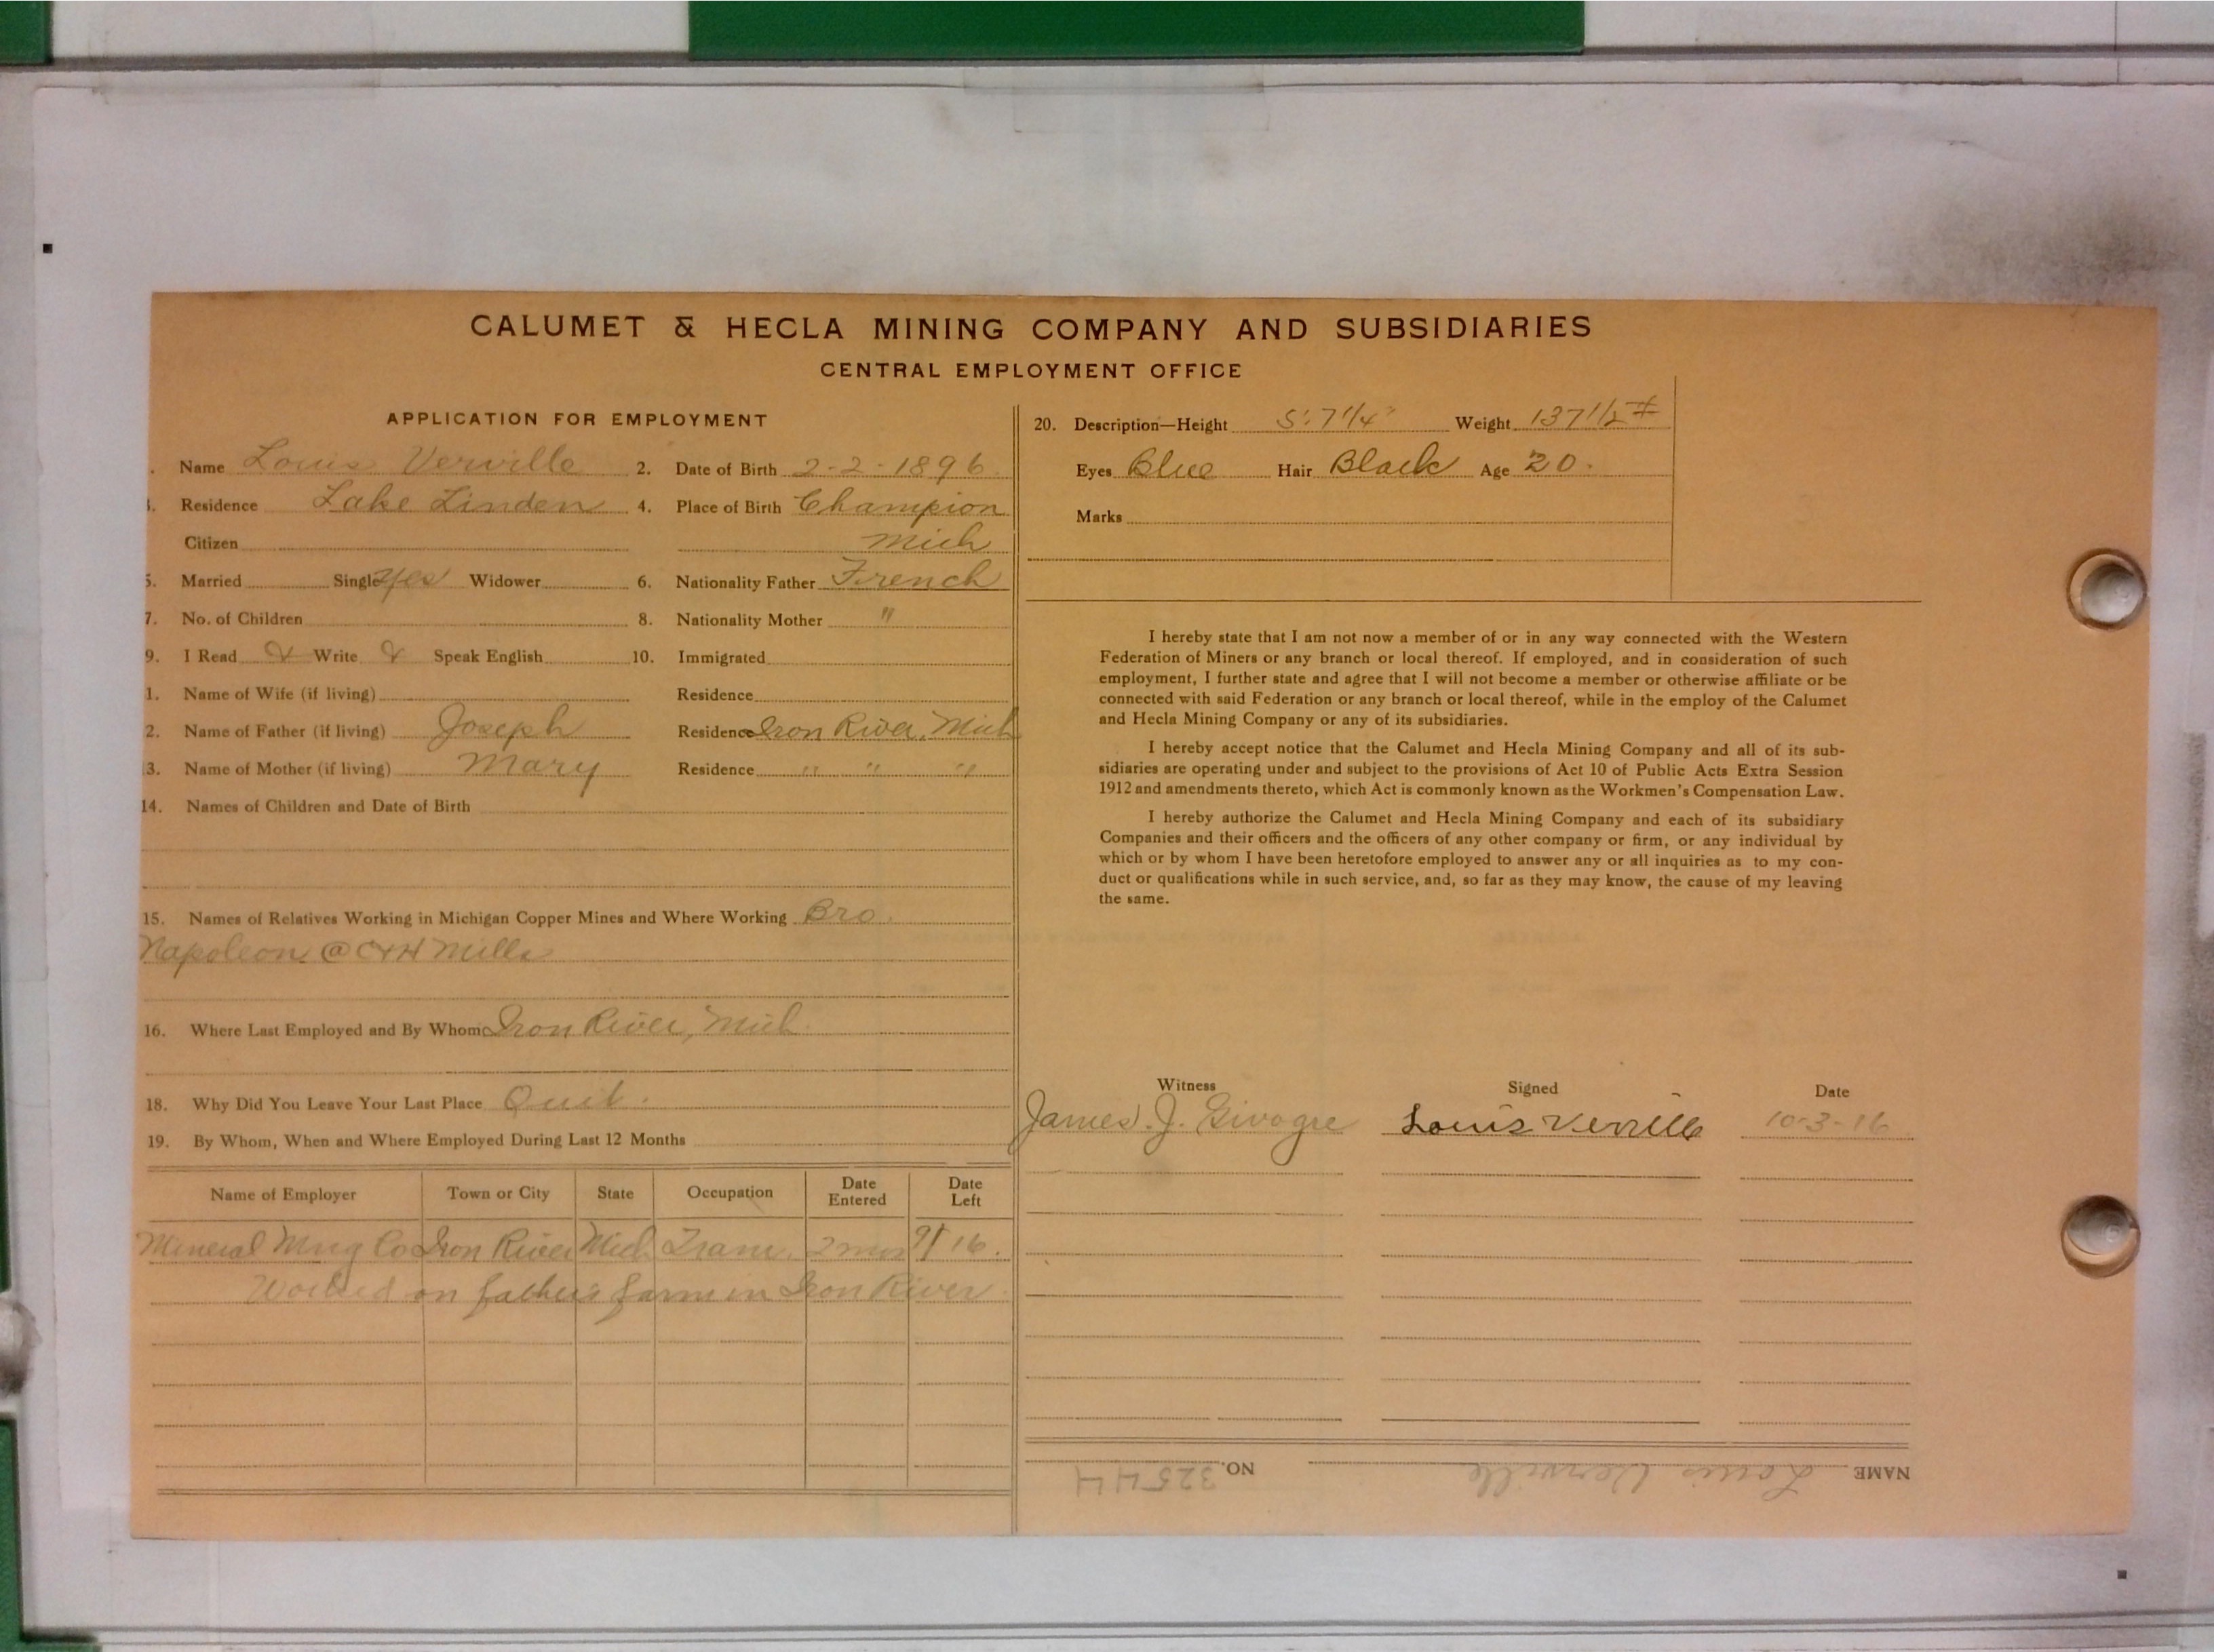 CALUMET & HECLA MINING COMPANY AND SUBSIDIARIES
CENTRAL EMPLOYMENT OFFICE
APPLICATION FOR EMPLOYMENT
. Name Louis Verville 2. Date of Birth 2-2-1896
. Residence Lake Linden 4. Place of Birth Champion
Citizen Mich
5. Married Single yes Widower 6. Nationality Father French
7. No. of Children 8. Nationality Mother "
9. I Read & Write & Speak English 10. Immigrated
1. Name of Wife (if living) Residence
2. Name of Father (if living) Joseph Residence Iron River, Mich
3. Name of Mother (if living) Mary Residence " " "
14. Names of Children and Date of Birth
15. Names of Relatives Working in Michigan Copper Mines and Where Working Bro.
Napoleon @ C&H Mills
16. Where Last Employed and By Whom Iron River, Mich.
18. Why Did You Leave Your Last Place Quit.
19. By Whom, When and Where Employed During Last 12 Months
Name of Employer Town or City State Occupation Date Entered Date Left
Mineral Mng Co Iron River Mich Tram. 2 mos 9/16.
Worked on father's farm in Iron River
20. Description—Height 5' 7 1/4" Weight 137 1/2 #
Eyes Blue Hair Black Age 20.
Marks
I hereby state that I am not now a member of or in any way connected with the Western
Federation of Miners or any branch or local thereof. If employed, and in consideration of such
employment, I further state and agree that I will not become a member or otherwise affiliate or be
connected with said Federation or any branch or local thereof, while in the employ of the Calumet
and Hecla Mining Company or any of its subsidiaries.
I hereby accept notice that the Calumet and Hecla Mining Company and all of its sub-
sidiaries are operating under and subject to the provisions of Act 10 of Public Acts Extra Session
1912 and amendments thereto, which Act is commonly known as the Workmen's Compensation Law.
I hereby authorize the Calumet and Hecla Mining Company and each of its subsidiary
Companies and their officers and the officers of any other company or firm, or any individual by
which or by whom I have been heretofore employed to answer any or all inquiries as to my con-
duct or qualifications while in such service, and, so far as they may know, the cause of my leaving
the same.
Witness Signed Date
James J. Louis Verville 10-3-16
NAME Louis Verville NO. 32544